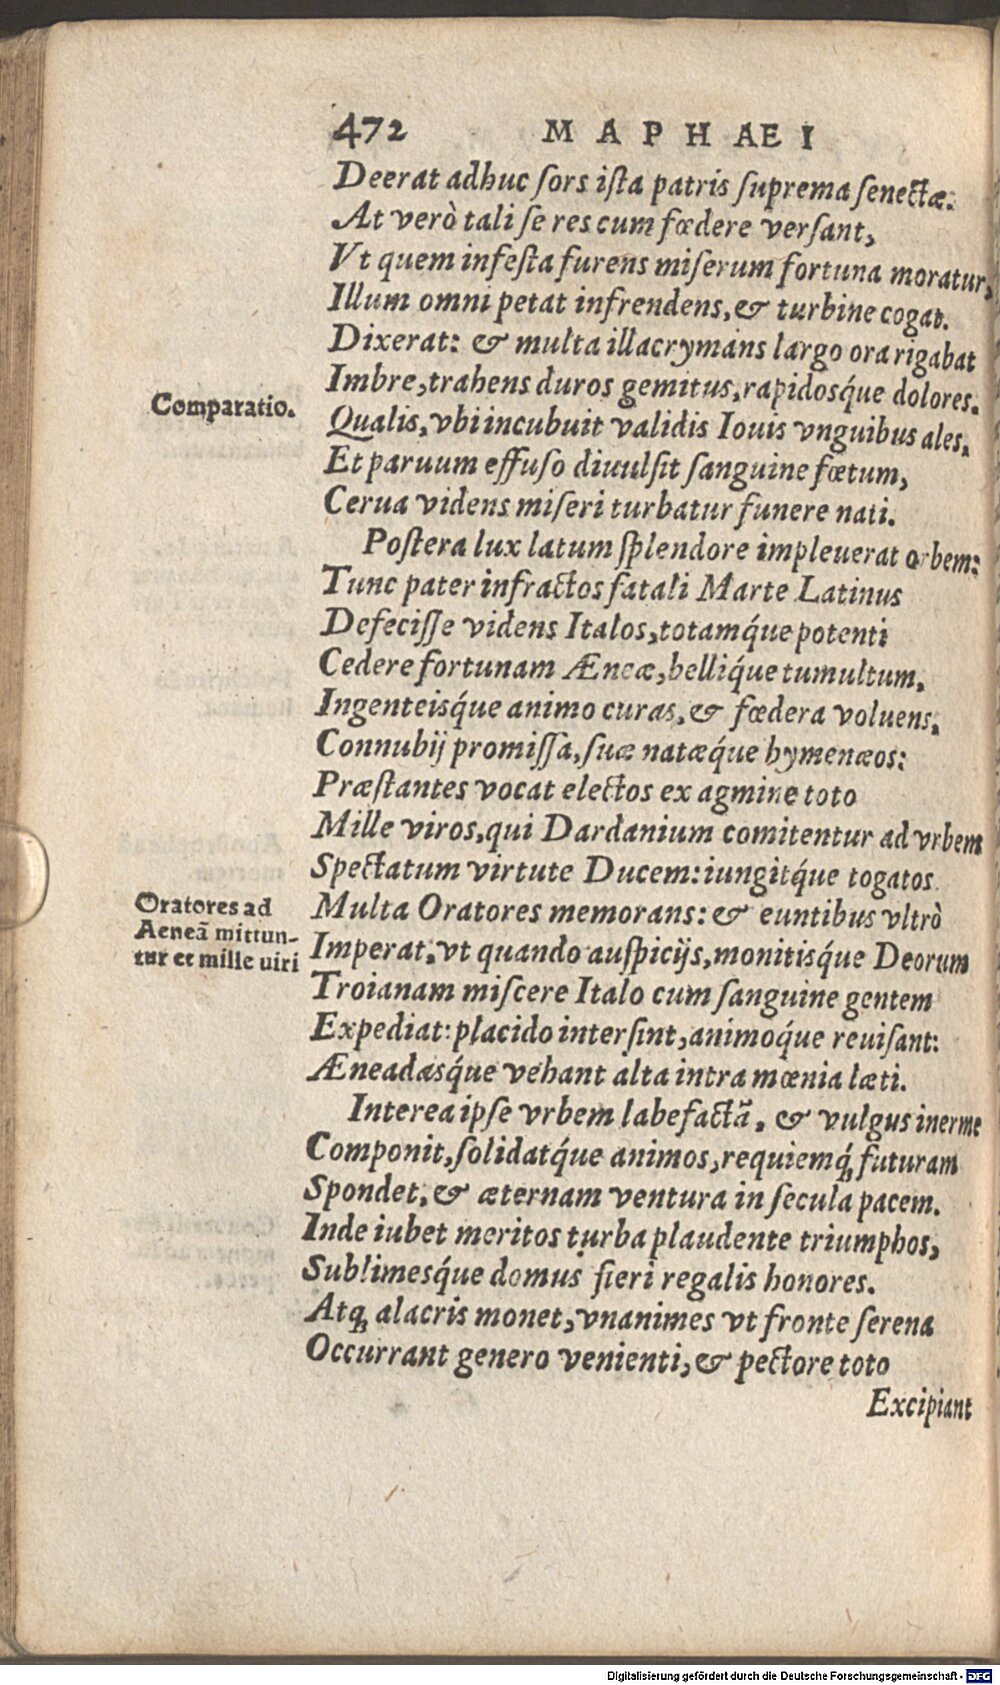 472 MAPHAEI
Deerat adhuc ſors iſta patris ſuprema ſenectæ.
At verò tali ſe res cum fœdere verſant,
Vt quem infeſta furens miſerum fortuna moratur,
Illum omni petat infrendens, & turbine cogat.
Dixerat: & multa illacrymans largo ora rigabat
Imbre, trahens duros gemitus, rapidosq́ue dolores.
Comparatio.
Qualis, vbi incubuit validis Iouis vnguibus ales,
Et paruum effuſo diuulſit ſanguine fœtum,
Cerua videns miſeri turbatur funere nati.
Poſtera lux latum ſplendore impleuerat orbem:
Tunc pater infractos fatali Marte Latinus
Defeciſſe videns Italos, totamq́ue potenti
Cedere fortunam Æneæ, belliq́ue tumultum,
Ingenteisq́ue animo curas, & fœdera voluens,
Connubij promiſſa, ſuæ natæq́ue hymenæos:
Præſtantes vocat electos ex agmine toto
Mille viros, qui Dardanium comitentur ad vrbem
Spectatum virtute Ducem: iungitq́ue togatos
Oratores ad
Aeneã mittun-
tur et mille uiri
Multa Oratores memorans: & euntibus vltrò
Imperat, vt quando auſpicijs, monitisq́ue Deorum
Troianam miſcere Italo cum ſanguine gentem
Expediat: placido interſint, animoq́ue reuiſant:
Æneadasq́ue vehant alta intra mœnia læti.
Interea ipſe vrbem labefactã, & vulgus inerme
Componit, ſolidatq́ue animos, requiemq́; futuram
Spondet, & æternam ventura in ſecula pacem.
Inde iubet meritos turba plaudente triumphos,
Sublimesq́ue domus fieri regalis honores.
Atq; alacris monet, vnanimes vt fronte ſerena
Occurrant genero venienti, & pectore toto
Excipiant
Digitalisierung gefördert durch die Deutsche Forschungsgemeinschaft - DFG